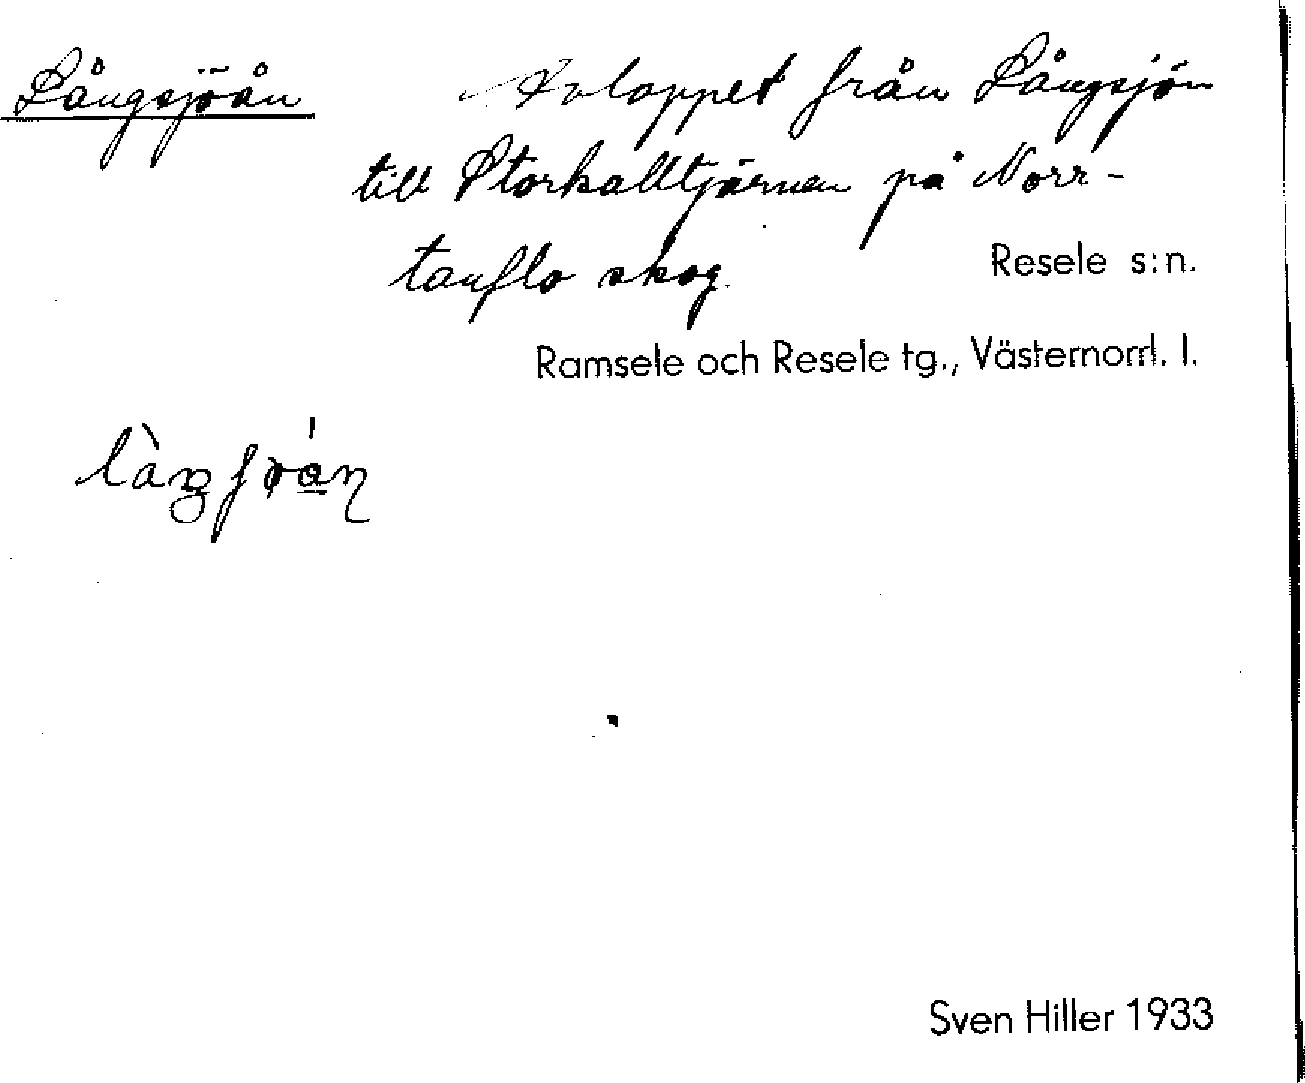 Långsjöån
Avloppet från Långsjön
till Storkalltjärnen på Norr-
tanflo skog
Resele s:n.
Ramsele och Resele tg., Västernorrl. l.
Sven Hiller 1933